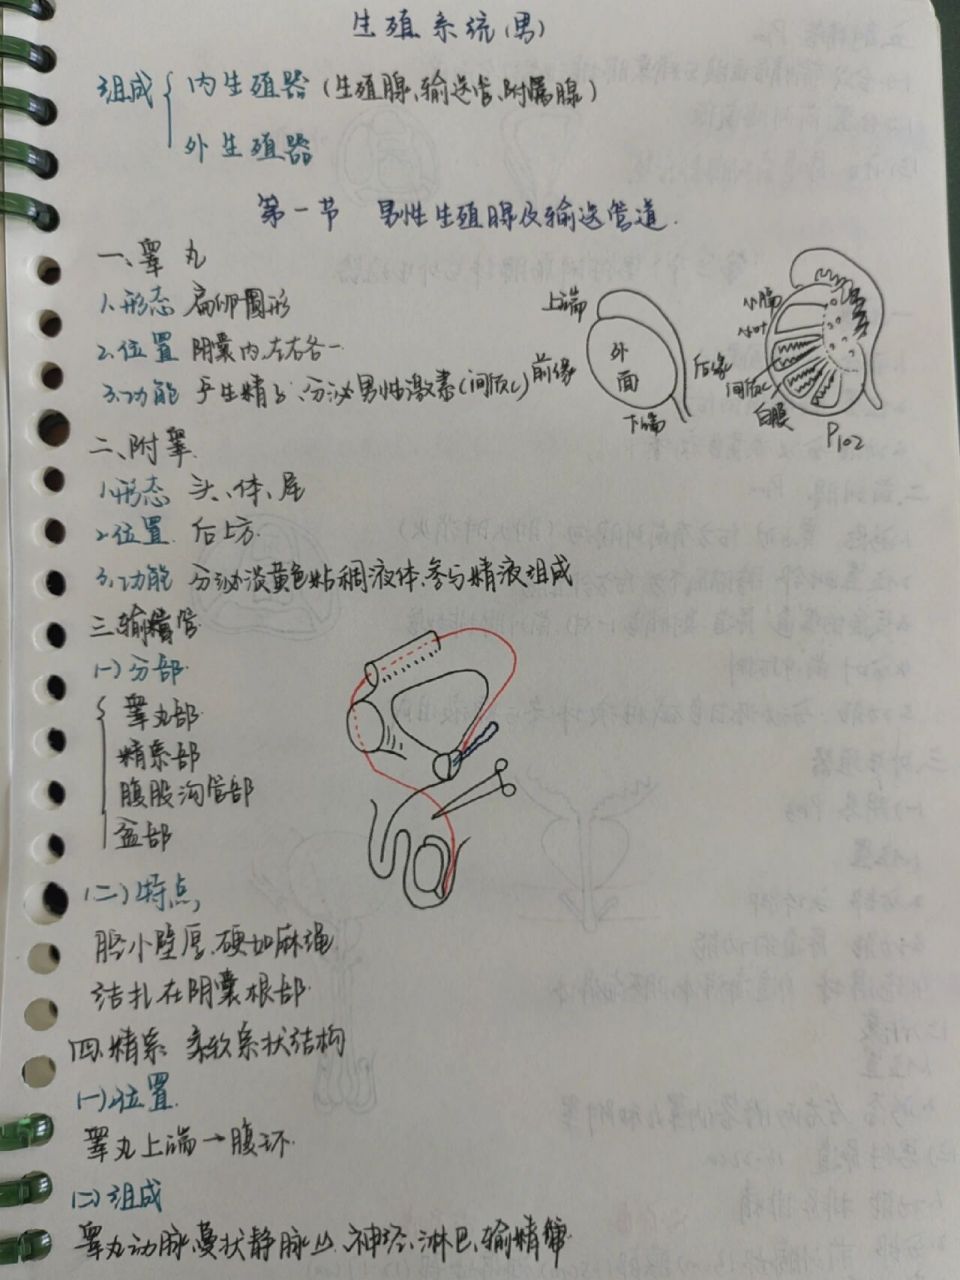 生殖系统(男)
组成{ 内生殖器(生殖腺、输送管、附属腺)
外生殖器
第一节 男性生殖腺及输送管道.
一、睾丸
1.形态 扁卵圆形
2.位置 阴囊内.左右各一
3.功能 产生精子.分泌男性激素(间质C)
上端
前缘
外面
后缘
下端
小隔
小叶
间质C
白膜
P102
二、附睾.
1.形态 头、体、尾
2.位置. 后上方.
3.功能 分泌淡黄色粘稠液体.参与精液组成
三.输精管
(一)分部.
{ 睾丸部
精索部
腹股沟管部
盆部
(二)特点
腔小壁厚.硬如麻绳.
结扎在阴囊根部.
四.精索 柔软索状结构
(一)位置.
睾丸上端→腹环.
(二)组成
睾丸动脉.蔓状静脉丛.神经.淋巴.输精管